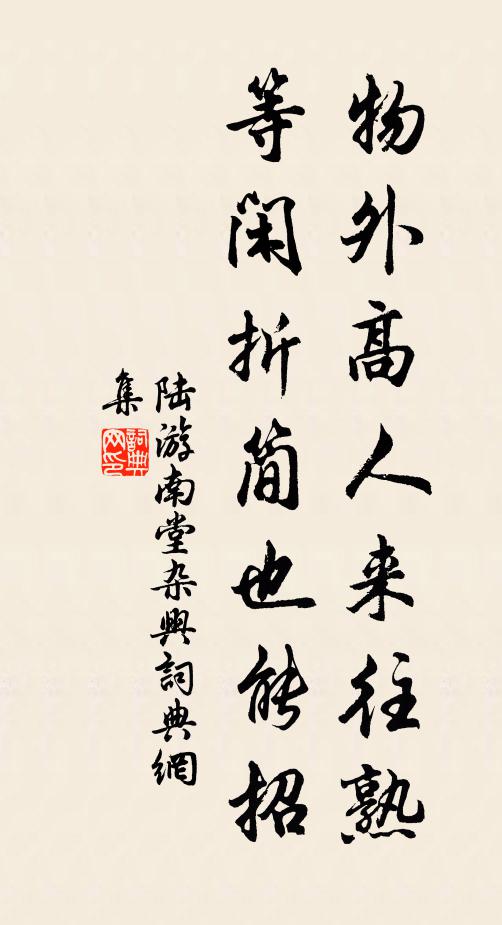 物外高人来往熟
等闲折简也能招
陆游南堂杂興詞典網
集
詞典网印